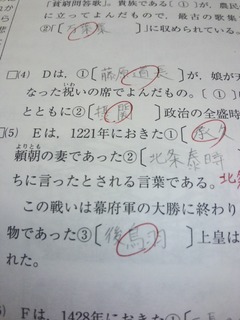 「貧窮問答歌」。貴族である〔①〕が,農民
に立ってよんだもので,最古の歌集
②〔万葉集〕に収められている。
□(4) Dは,①〔藤原道長〕が,娘が天
なった祝いの席でよんだもの。〔①〕
とともに②〔摂関〕政治の全盛時
□(5) Eは,1221年におきた①〔承久
頼朝の妻であった②〔北条泰時
よりとも
ちに言ったとされる言葉である。北条
この戦いは幕府軍の大勝に終わり
物であった③〔後鳥羽〕上皇は
れた。
Fは,1428年におきた①